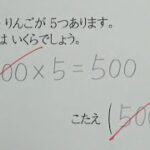 りんごが 5つあります。
は いくらでしょう。
00×5=500
こたえ (500